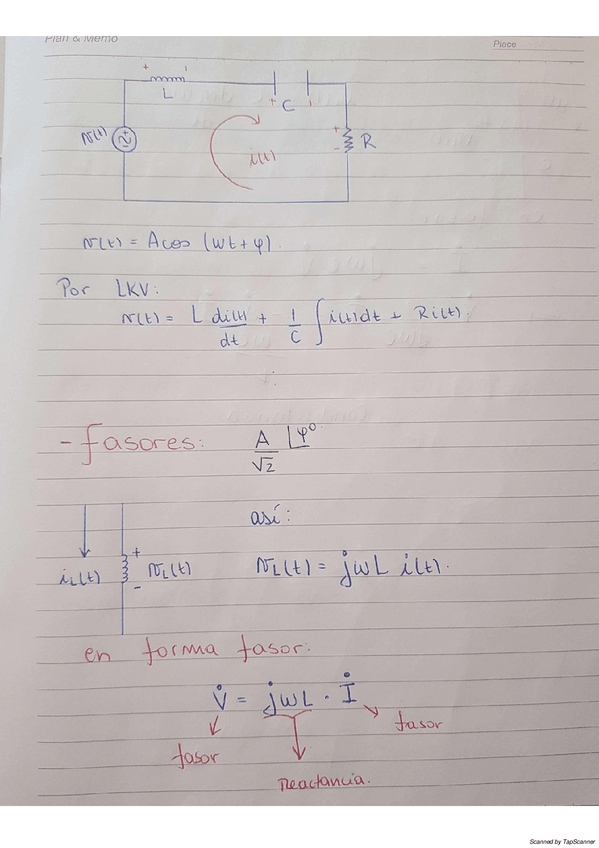 Plan & Memo
Place
+
L
+
C
v(t)
+
-
R
i(t)
v(t) = A cos (wt + φ).
Por LKV:
v(t) = L di(t)/dt + 1/C ∫ i(t)dt + Ri(t).
- fasores: A/√2 ∠φ°
así:
iL(t) + vL(t) - vL(t) = jwL i(t).
en forma fasor:
V̇ = jwL · İ
fasor
fasor
Reactancia.
Scanned by TapScanner